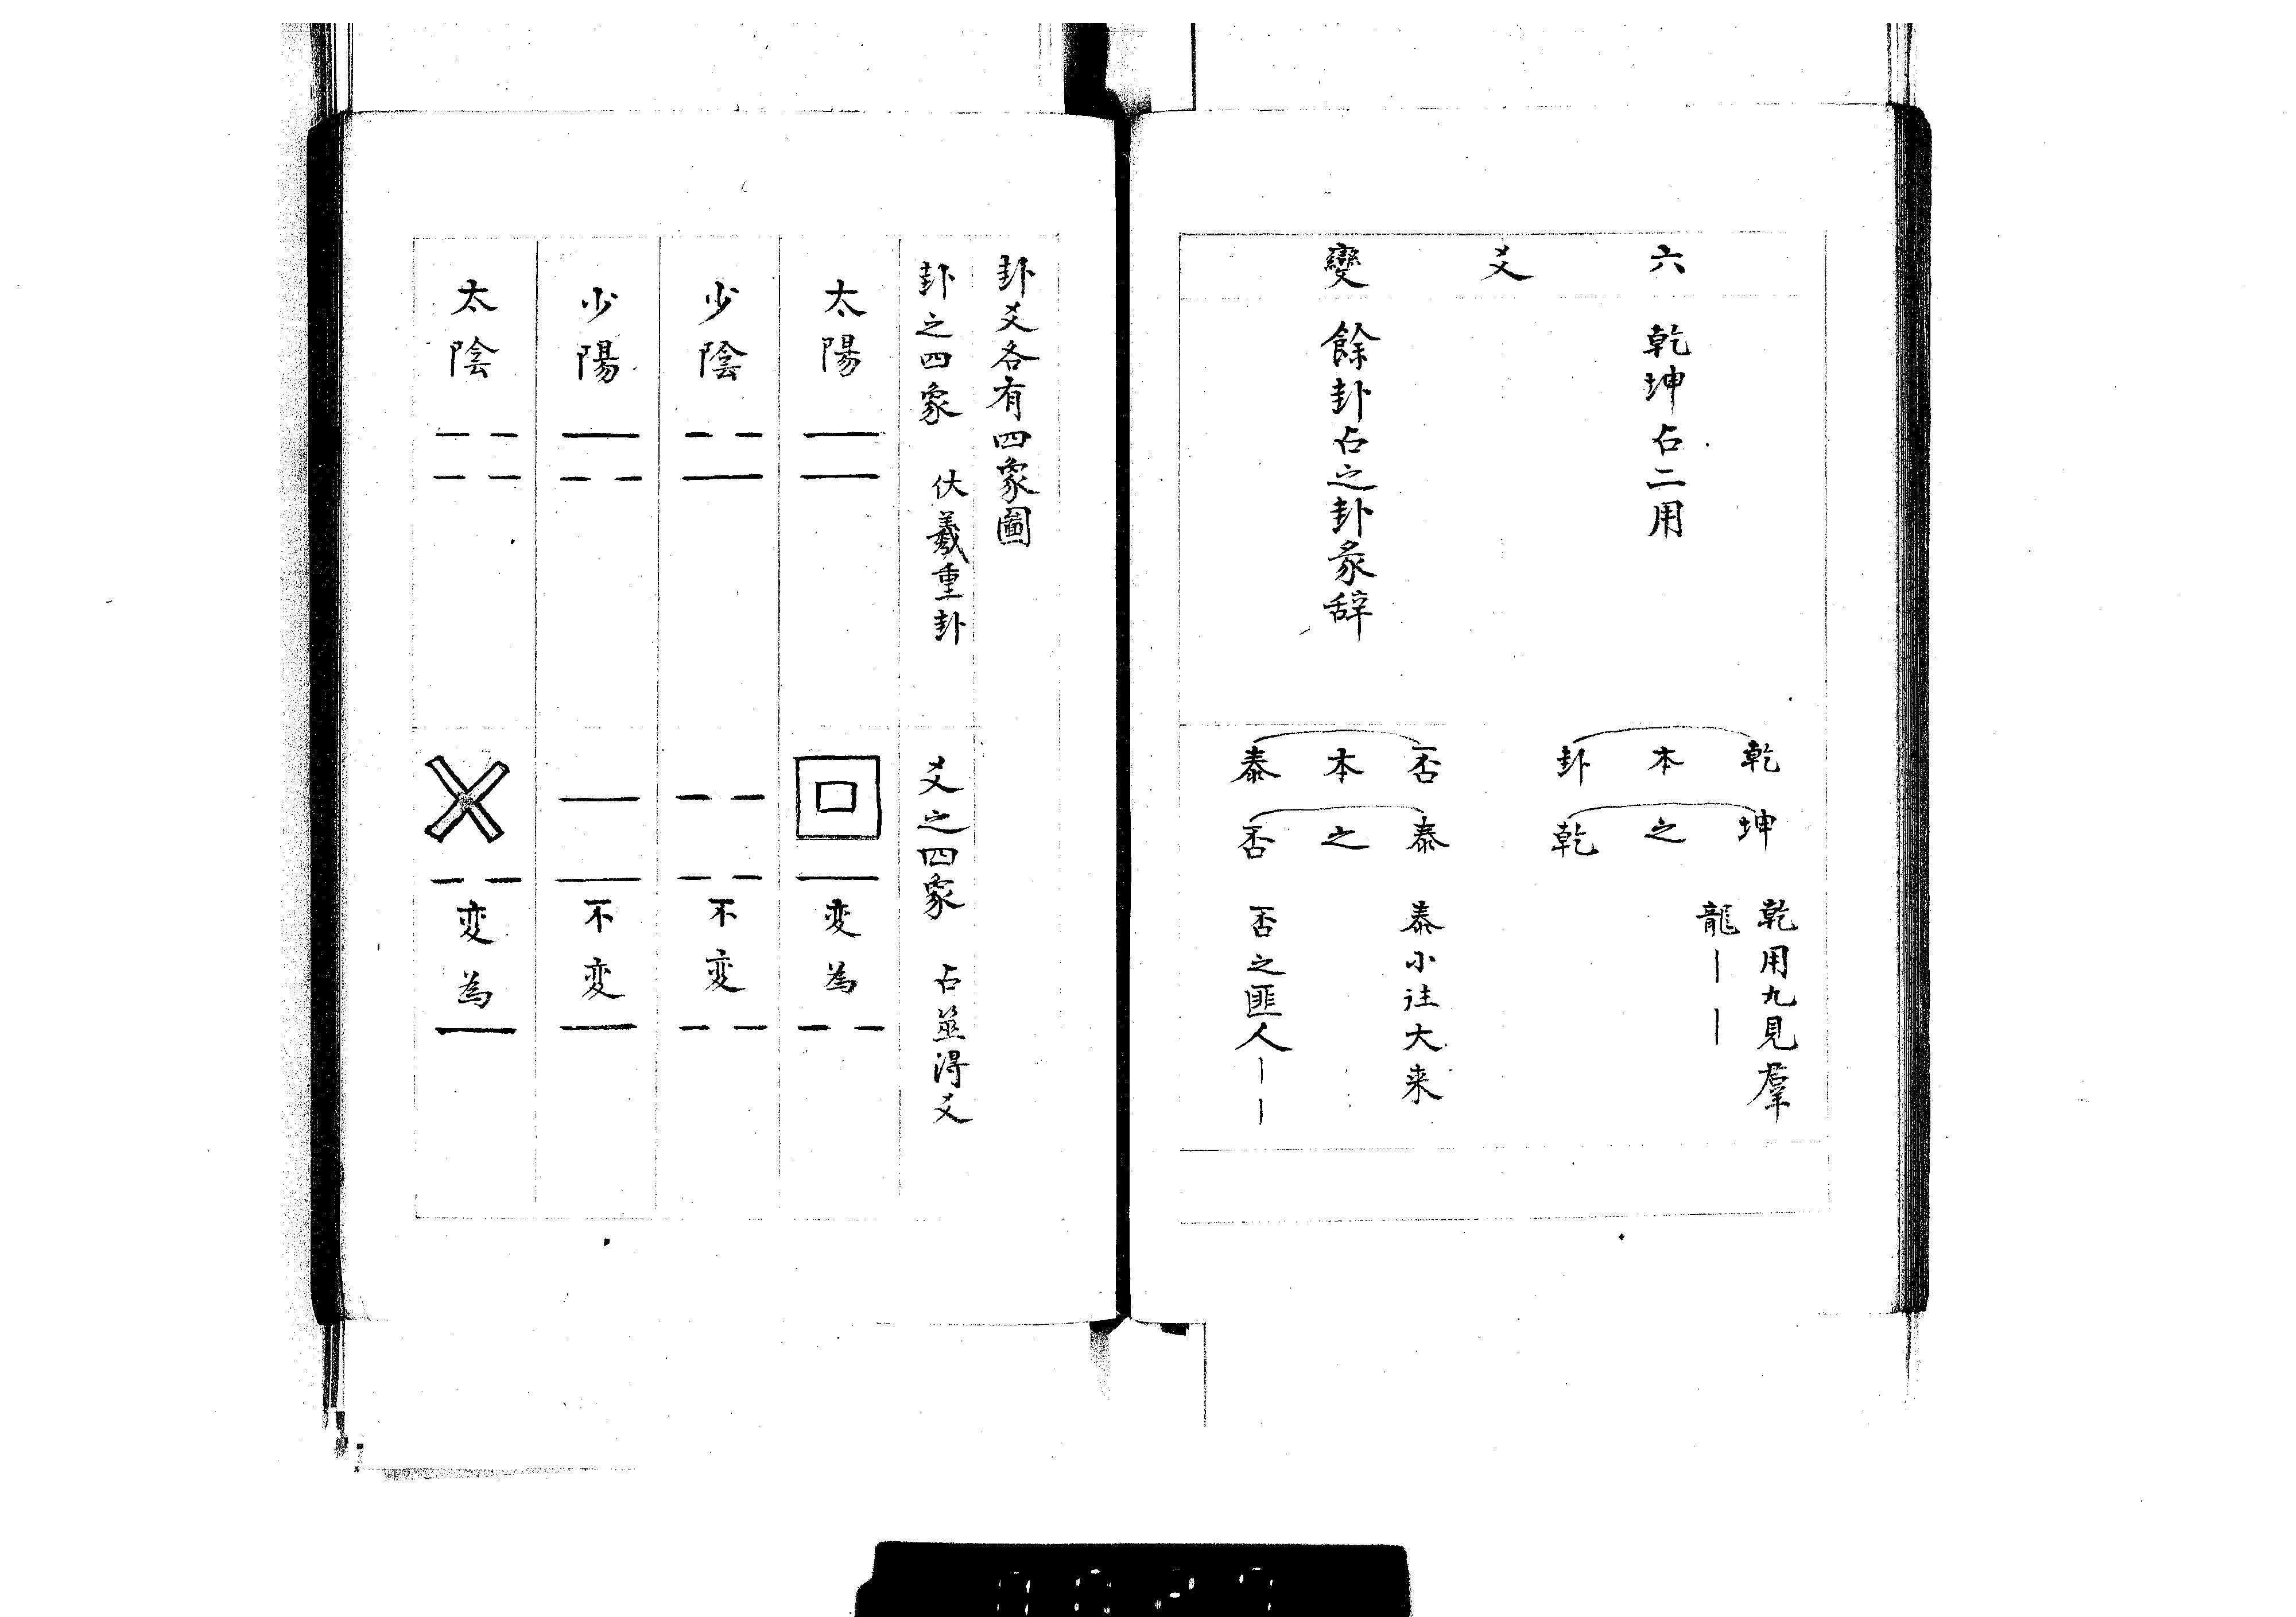 六爻變
乾坤占二用
餘卦占之卦彖辞
乾本卦
坤之乾
乾用九見羣
龍||
否本泰
泰之否
泰小往大来
否之匪人||
卦爻各有四象圖
卦之四象 伏羲重卦
爻之四象 占筮得爻
太陽
變為
少陰
不変
少陽
不変
太陰
変為